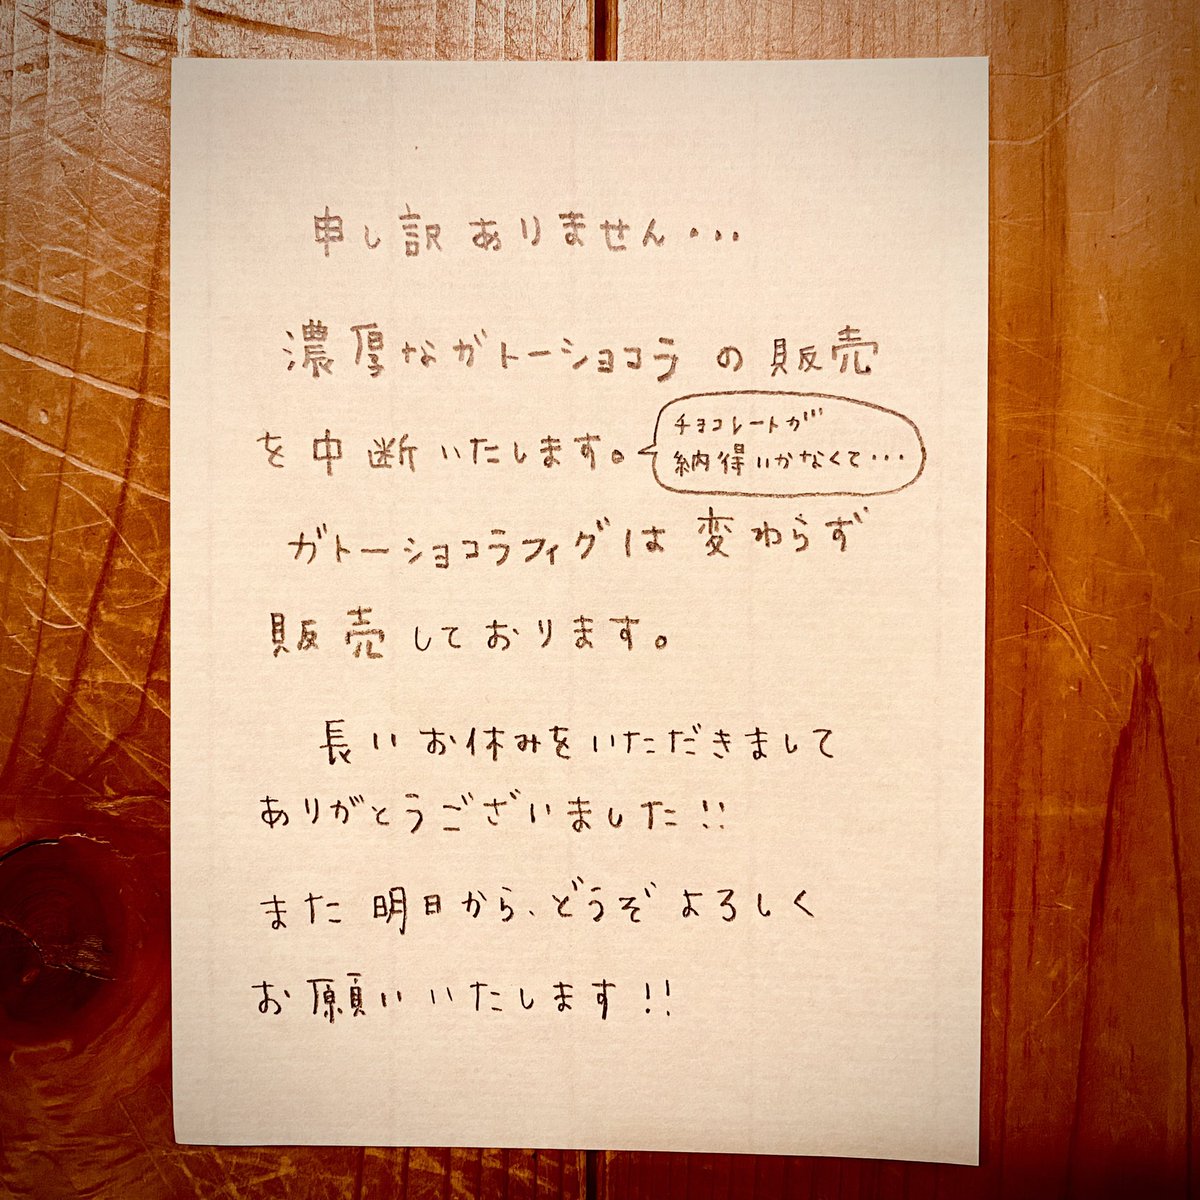 申し訳ありません・・・
濃厚なガトーショコラの販売
を中断いたします。
チョコレートが
納得いかなくて・・・
ガトーショコラフィグは変わらず
販売しております。
長いお休みをいただきまして
ありがとうございました!!
また明日から、どうぞよろしく
お願いいたします!!